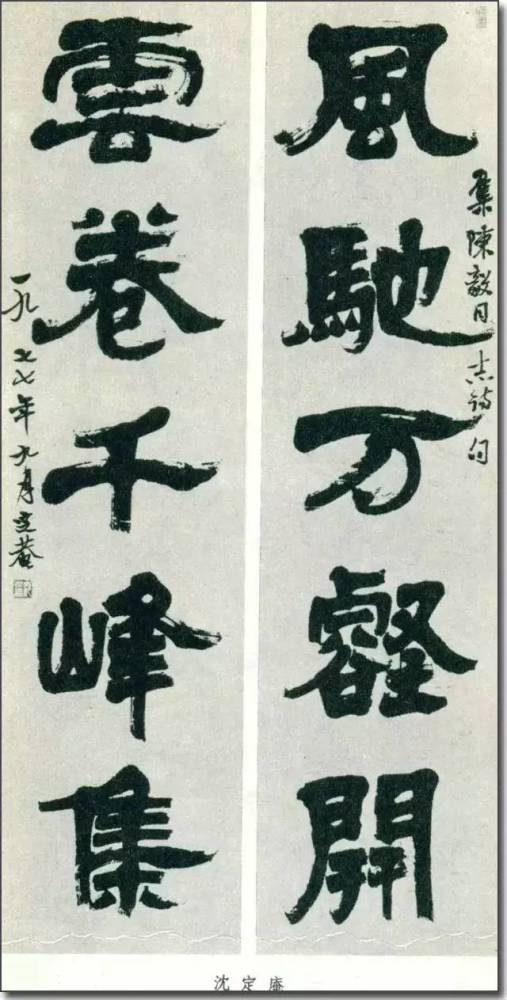 風馳万壑開
集陳毅同志詩句
雲卷千峰集
一九七七年九月定菴
沈定庵